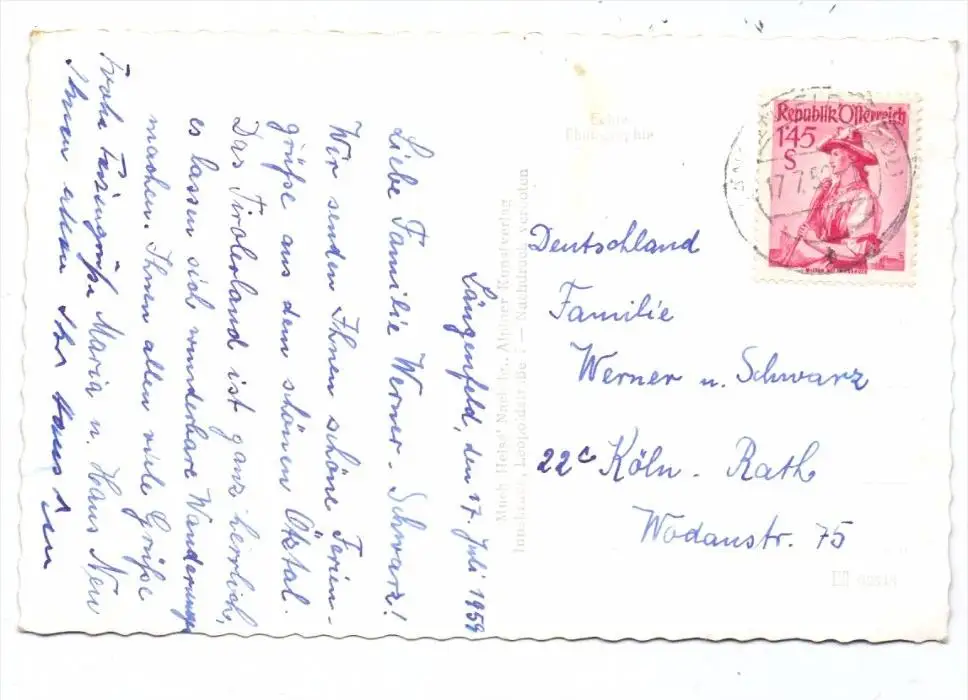 Längenfeld, den 17. Juli 1959
Liebe Familie Werner-Schwarz!
Wir senden Ihnen schöne Ferien-
grüße aus dem schönen Ötztal.
Das Tirolerland ist ganz herrlich,
es lassen sich wunderbare Wanderungen
machen. Ihnen allen viele Grüße
Maria u. Hans Neu
Frohe Feriengrüße
Ihnen allen Ihr
Echte
Photographie
Much Heiss' Nachfg., Alpiner Kunstverlag
Innsbruck, Leopoldstraße — Nachdruck verboten
Republik Österreich
1'45
S
17.7.59
Deutschland
Familie
Werner u. Schwarz
22c Köln-Rath
Wodanstr. 75